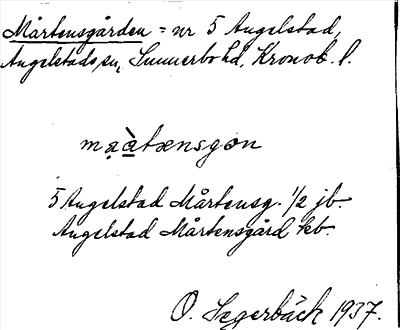 Mårtensgården = nr 5 Angelstad,
Angelstads sn, Sunnerbo hd, Kronob. l.
mạàtænsgon
5 Angelstad Mårtensg. 1/2 jb.
Angelstad Mårtensgård kb.
O. Segerbäck 1937.